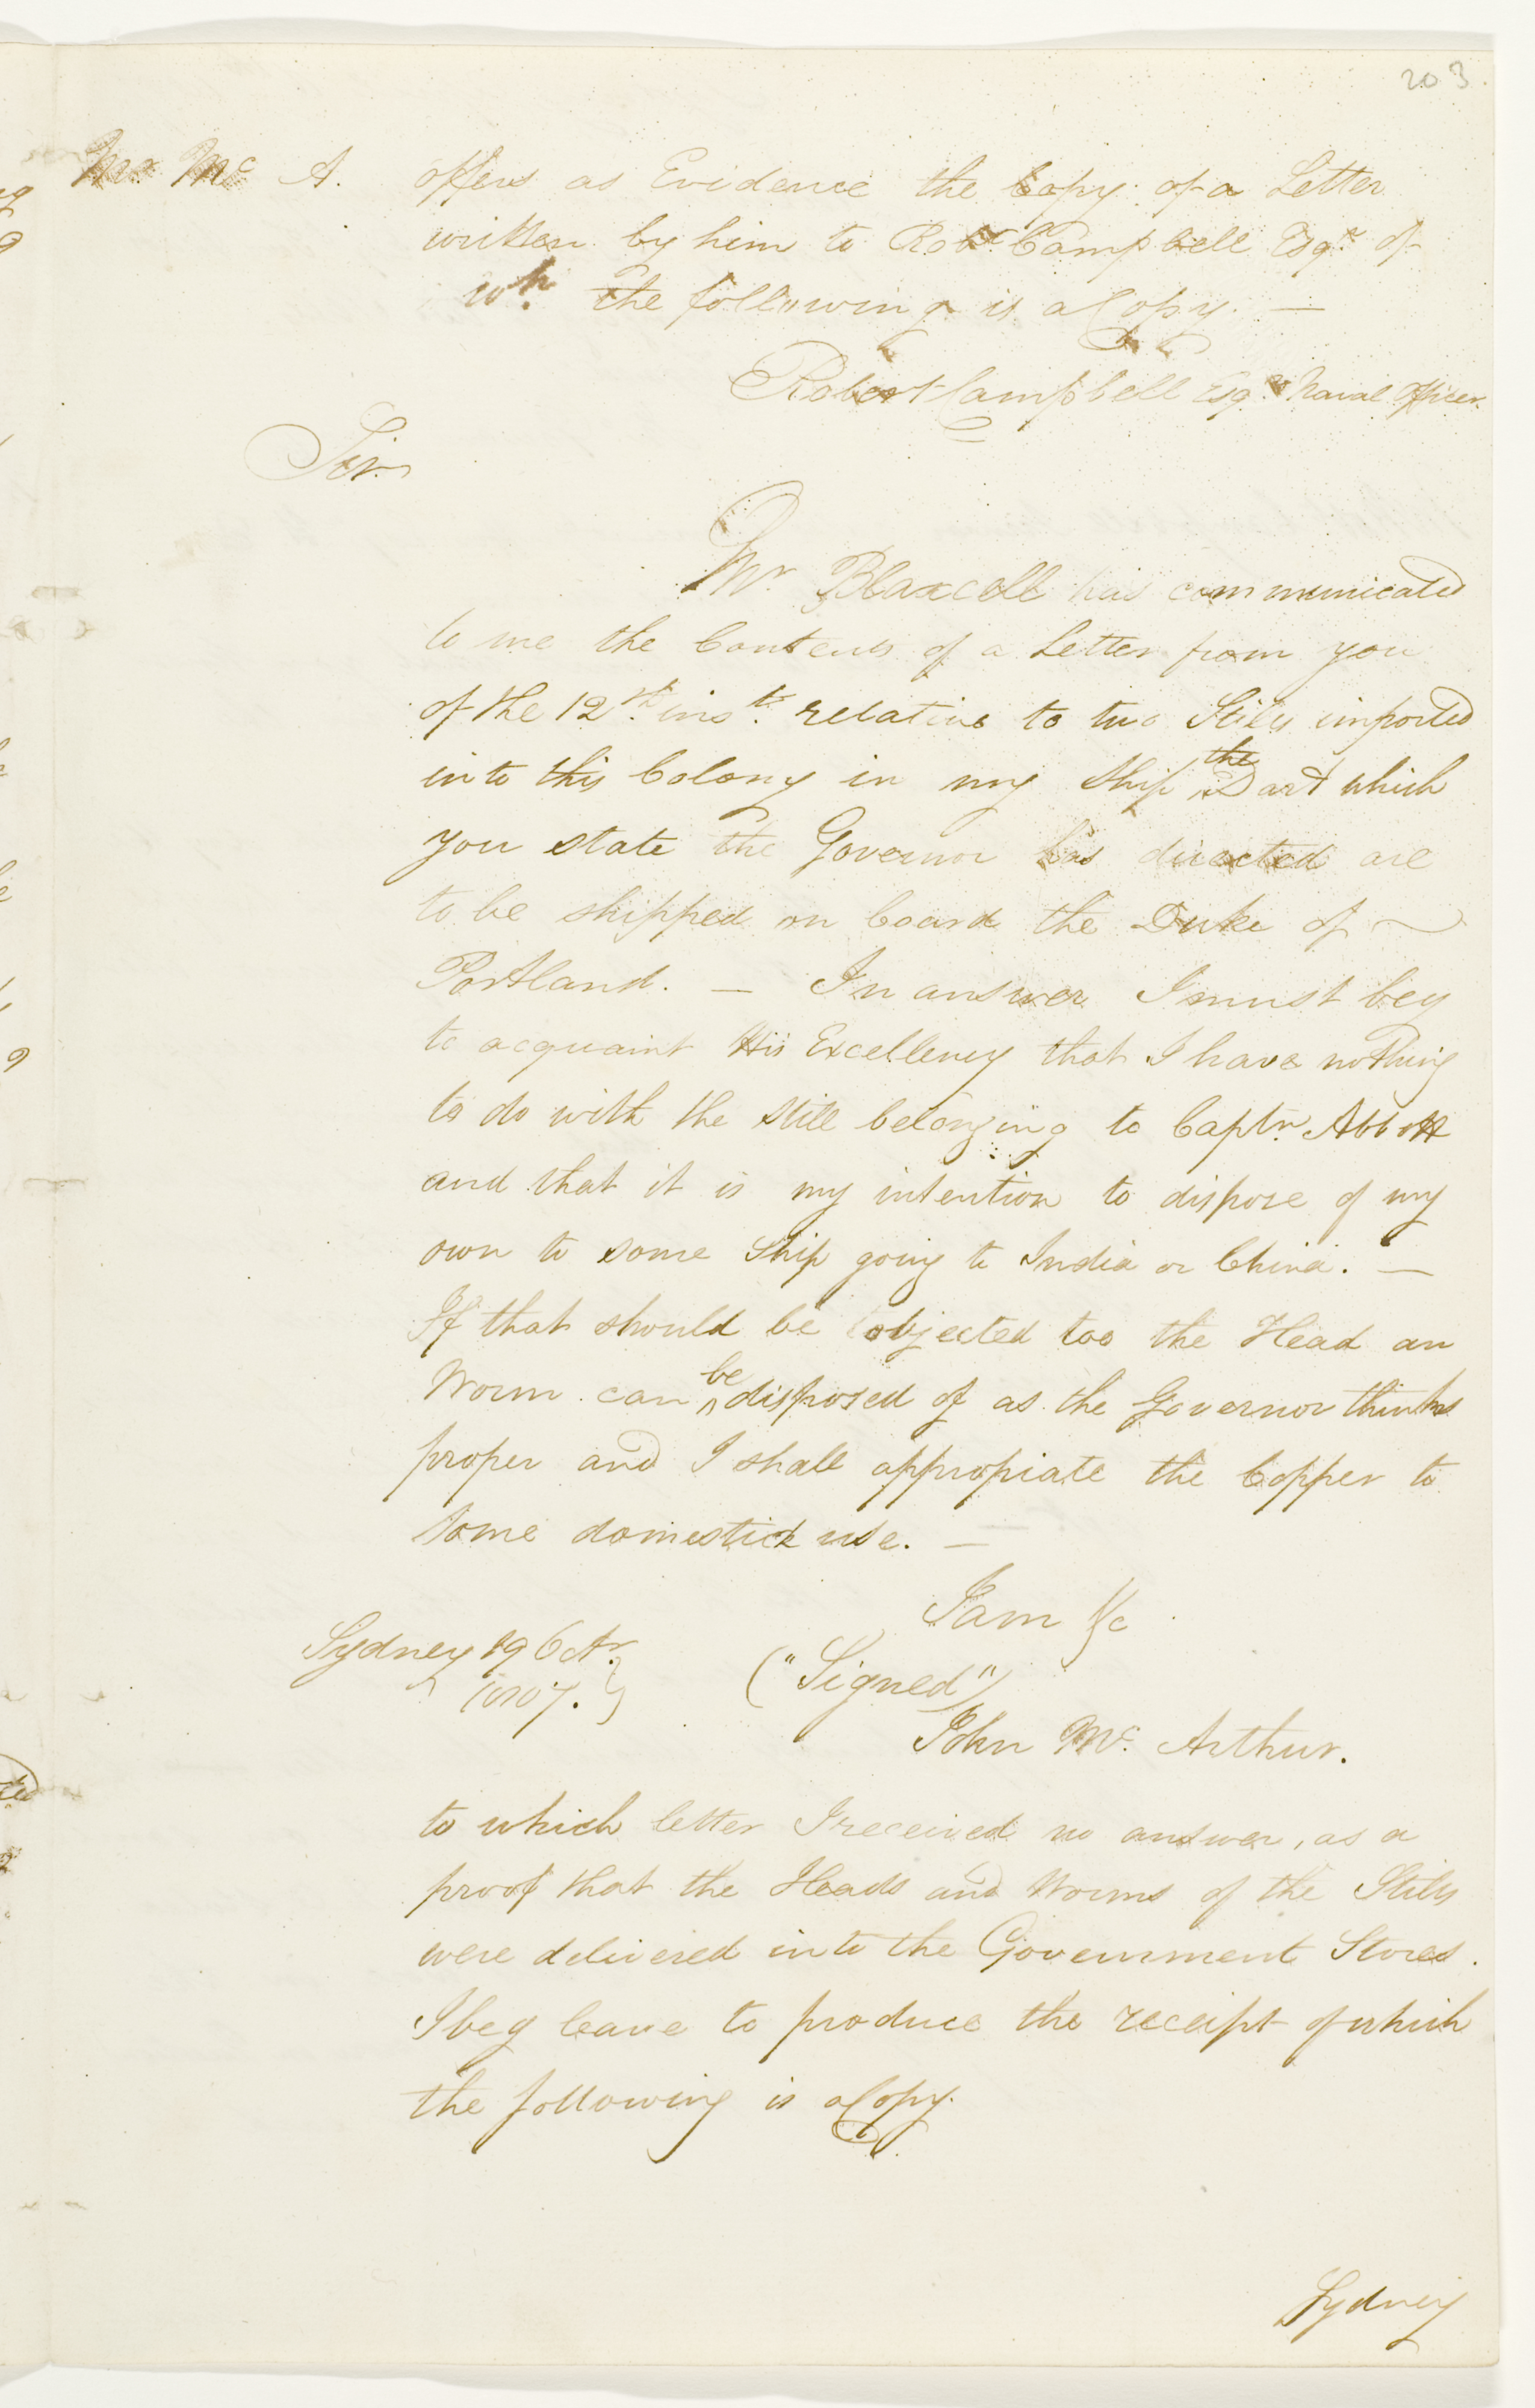 203.
Mr. Mc A. offers as Evidence the Copy of a Letter
written by him to Robt. Campbell Esqr. of
wh. the following is a Copy. —
Robert Campbell Esqr. Naval Officer.
Sir
Mr. Blaxcell has communicated
to me the Contents of a Letter from you
of the 12th. inst. relative to two Stills imported
into this Colony in my Ship the Dart which
you state the Governor has directed are
to be shipped on board the Duke of
Portland. — In answer I must beg
to acquaint His Excellency that I have nothing
to do with the Still belonging to Captn. Abbott
and that it is my intention to dispose of my
own to some Ship going to India or China. —
If that should be objected too the Head an
Worm can be disposed of as the Governor thinks
proper and I shall appropiate the Copper to
some domestick use. —
I am &c
Sydney 19 Octr.
1807.
("Signed")
John Mc. Arthur.
to which letter I received no answer, as a
proof that the Heads and Worms of the Stills
were delivered into the Government Stores.
I beg leave to produce the receipt of which
the following is a Copy.
Sydney